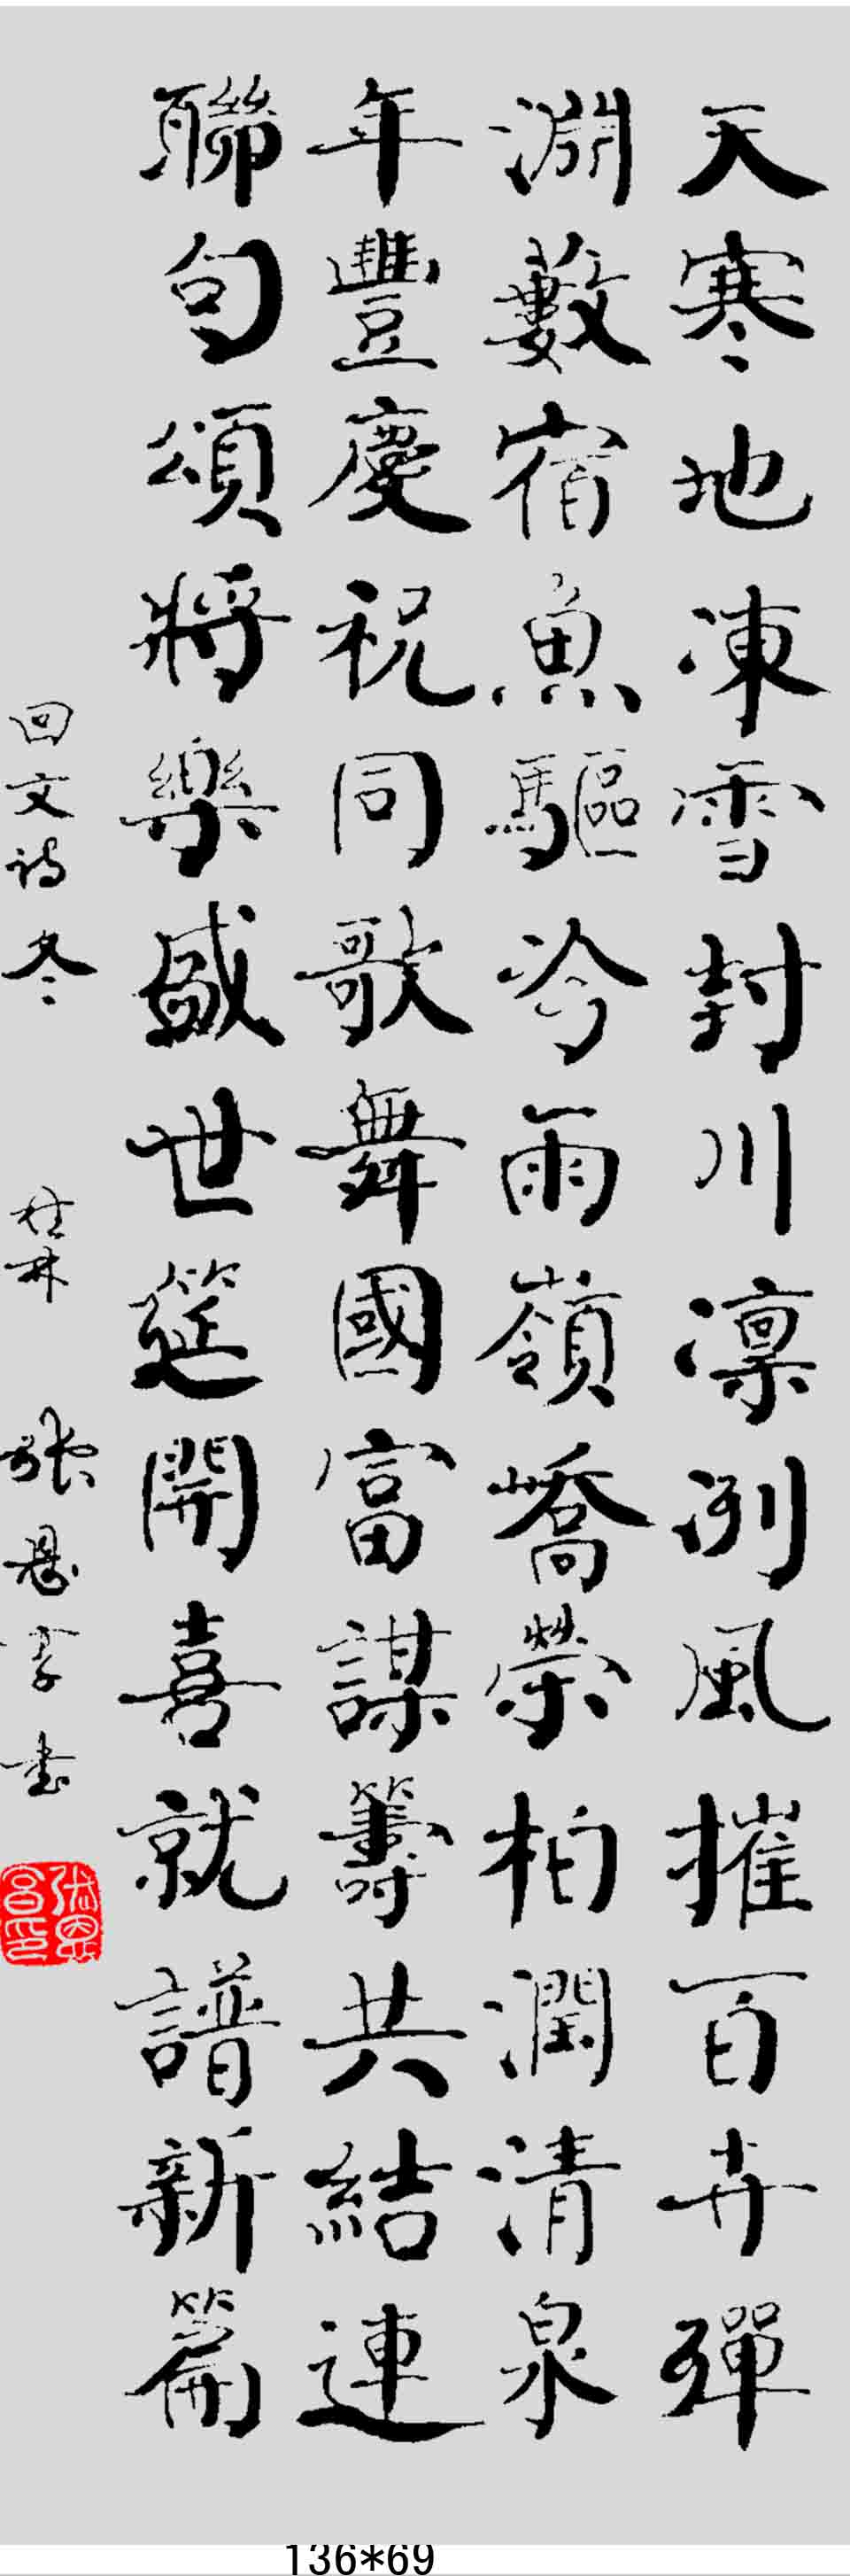 天寒地凍雪封川凛冽風摧百卉殫
淵藪宿魚驅冷雨嶺嶠榮柏潤清泉
年豐慶祝同歌舞國富謀籌共結連
聯句頌將樂盛世筵開喜就譜新篇
回文诗冬 桂林 張恩 书
136*69